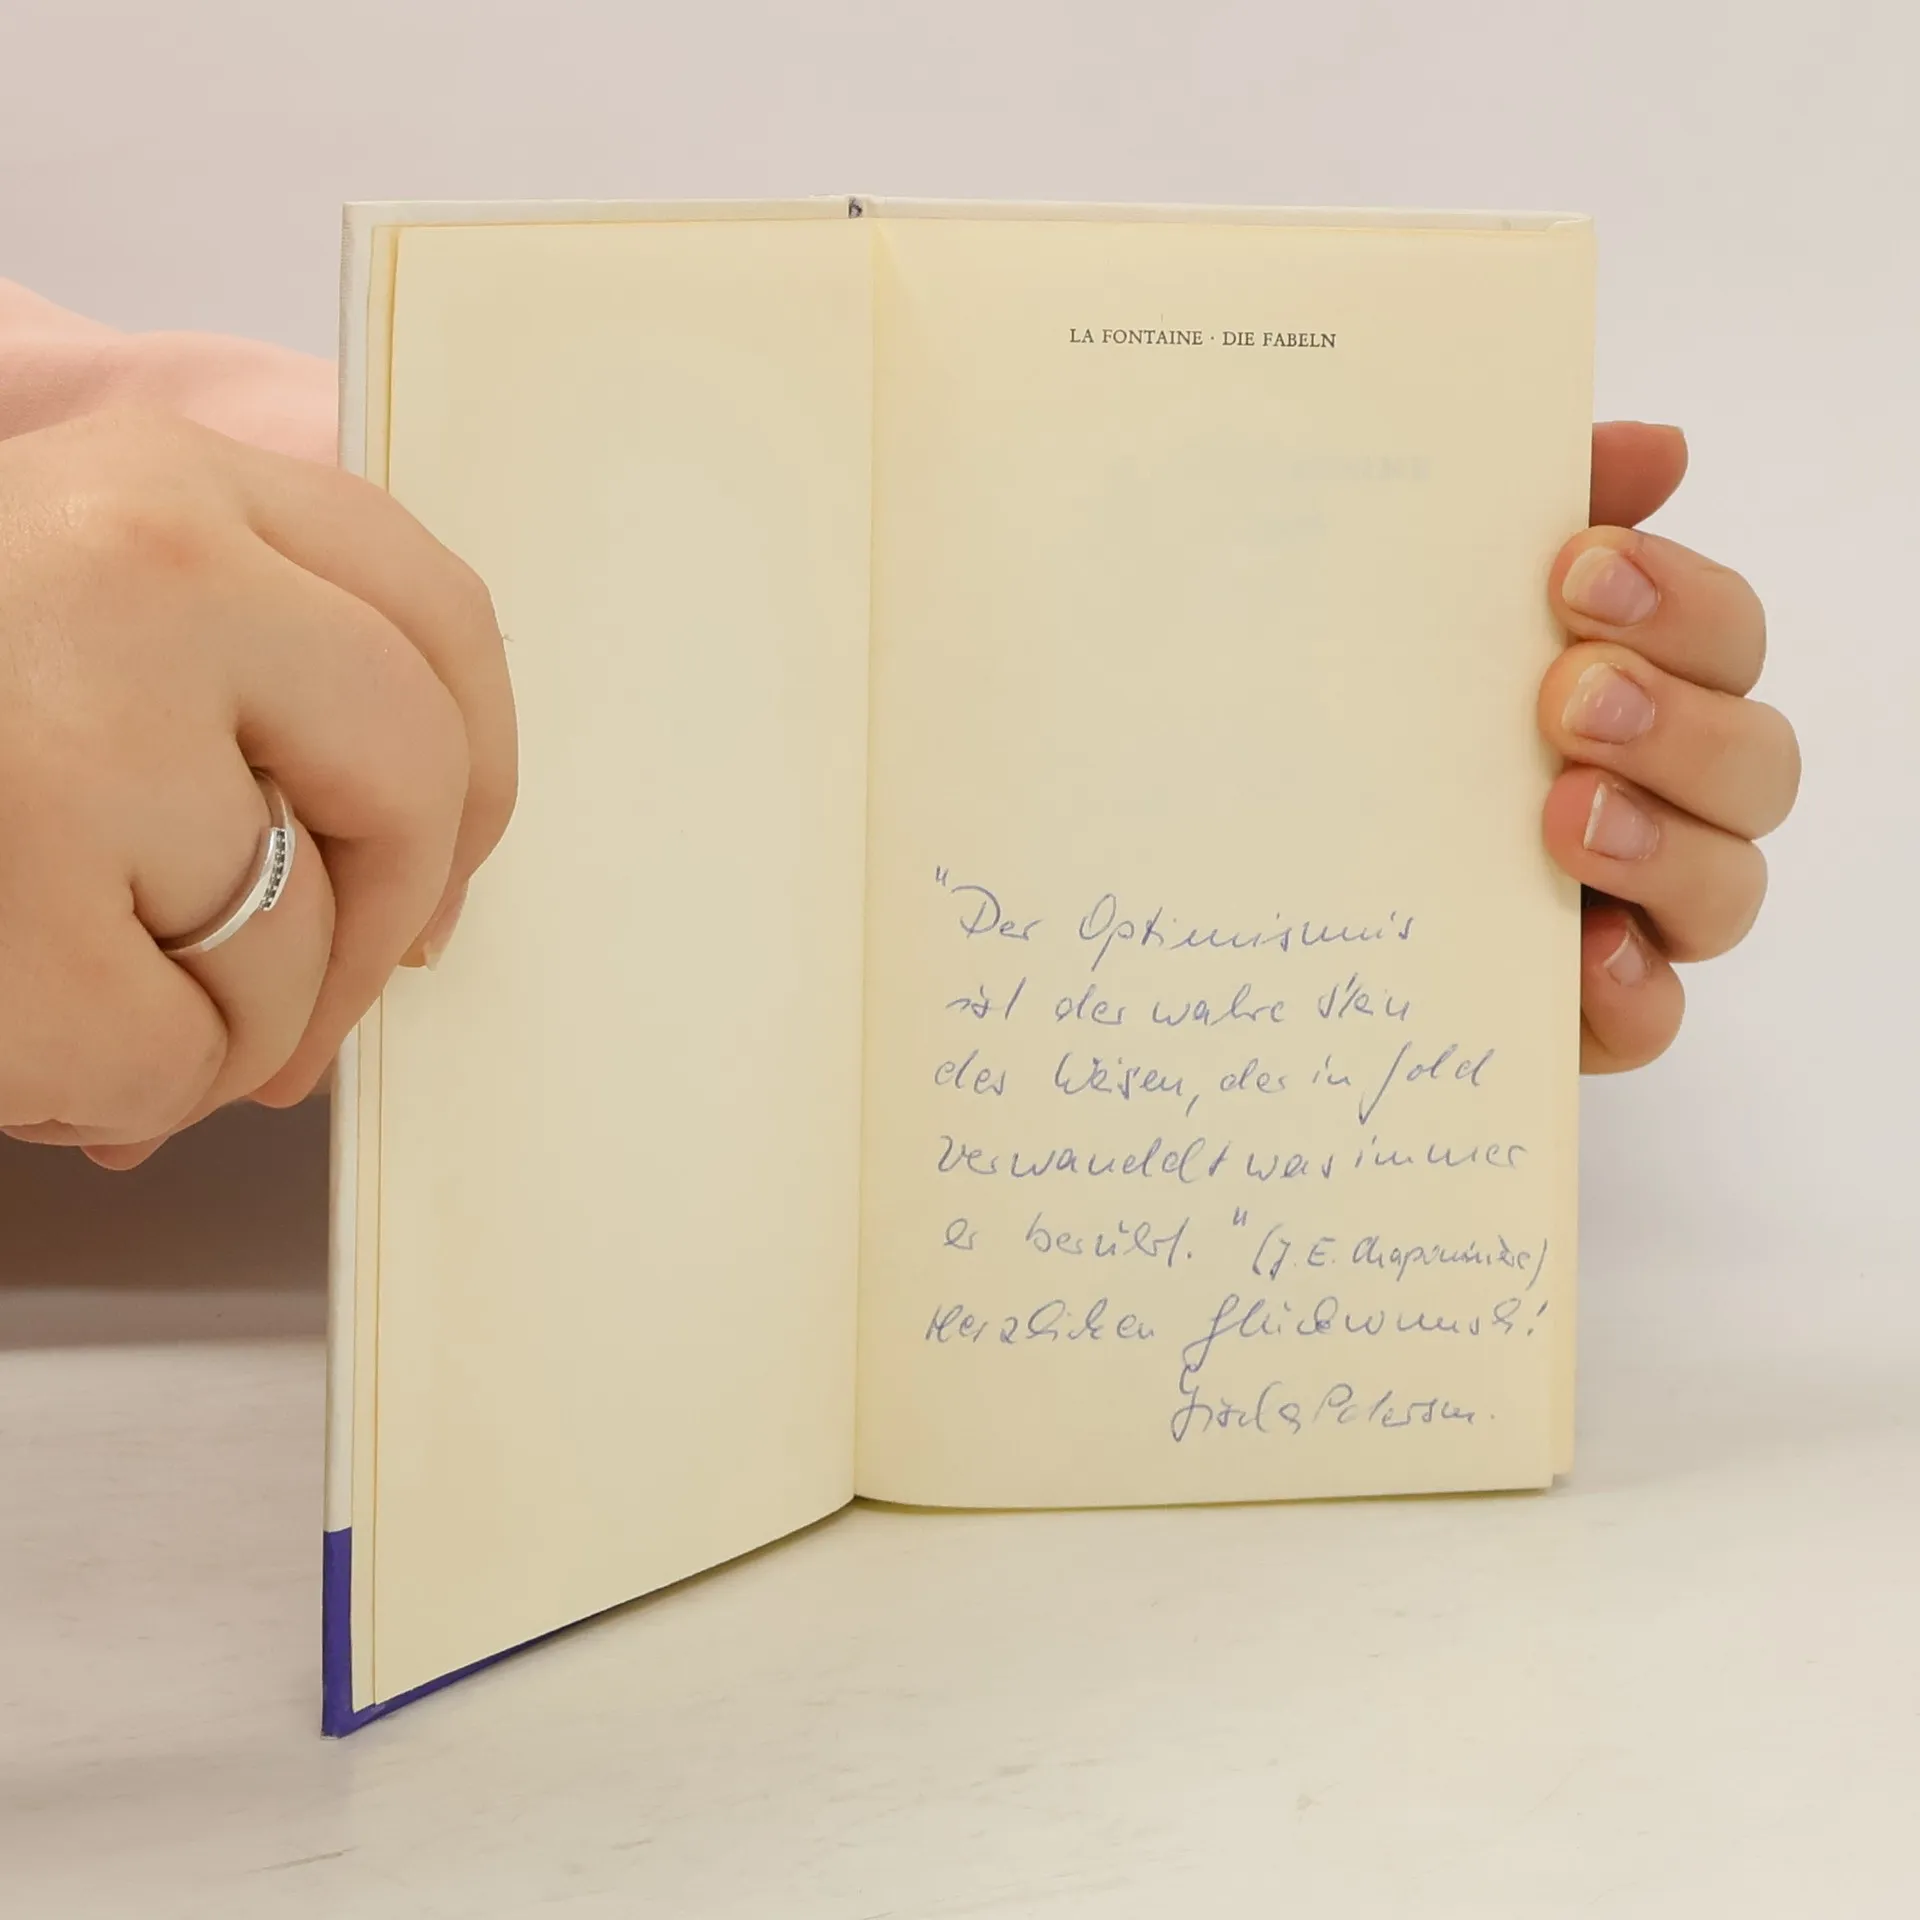 LA FONTAINE · DIE FABELN
"Der Optimismus
ist der wahre Stein
des Weisen, der in Gold
verwandelt was immer
er berührt." (J. E. Chaponnière)
Herzlichen Glückwunsch!
Gisela Petersen.